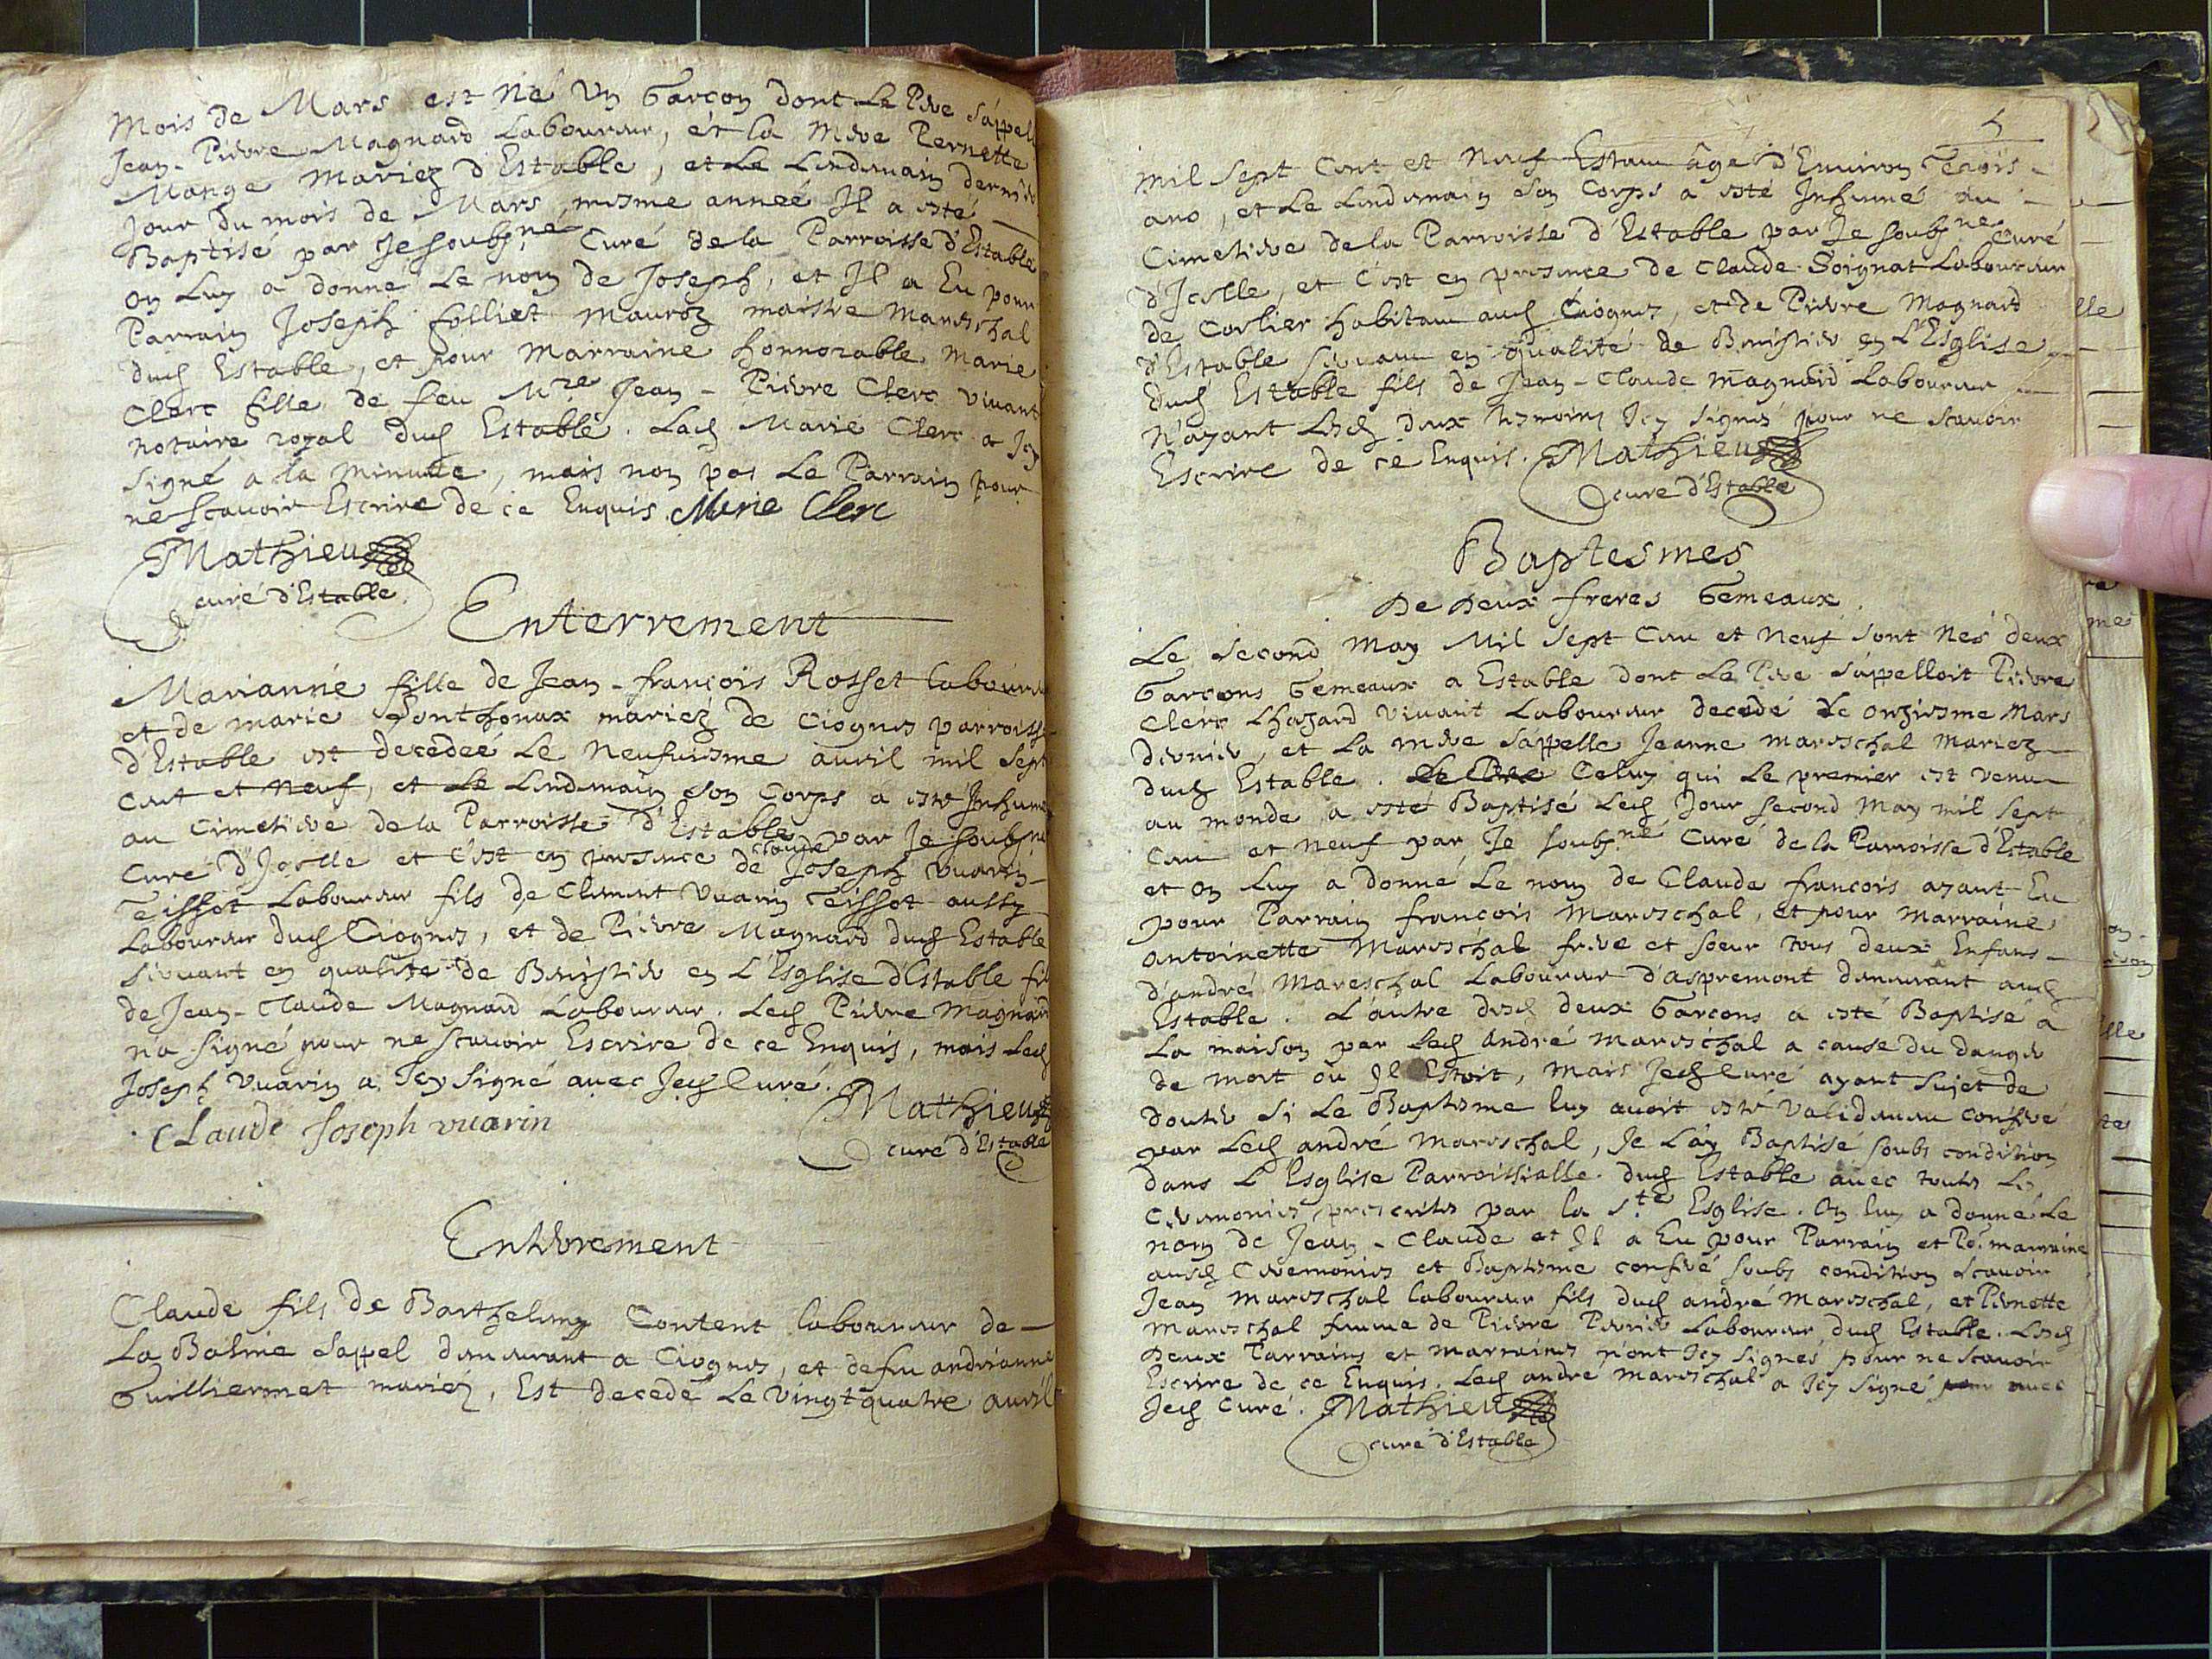 Mois de Mars est Né Un Garçon dont Le Pere s'appel
Jean-Pierre Magnard Laboureur, et la Mere Pernette
Mange Mariez d'Estable, et Le Lendemain dernier
Jour du mois de Mars mesme année Il a esté
Baptisé par Je soubsné Curé de la Parroisse d'Estable
On Luy a donné Le nom de Joseph, et Il a Eu pour
Parrain Joseph folliet Mauroz maistre Mareschal
dud Estable, et pour Marraine honnorable Marie
Clerc fille de feu Mre Jean-Pierre Clerc vivant
notaire royal dud Estable. Lad Marie Clerc a Icy
signé a la Minutte, mais non pas Le Parrain pour
ne scavoir Escrire de ce Enquis Marie Clerc
Mathieu
curé d'Estable
Enterrement
Marianne fille de Jean-françois Rosset laboureur
et de marie Ponthonax mariez de Ciognes parroisse
d'Estable est decedeé Le Neufuiesme auril mil Sept
Cent et Neuf, et Le Lendemain son Corps a esté Inhumé
au Cimetiere de la Parroisse d'Estable par Je soubsné
Curé d'Icelle et c'est en presence de Claude Joseph Vuarin
Teissot Laboureur fils de Clement Vuarin Teissot aussy
Laboureur dud Ciognes, et de Pierre Magnard dud Estable
seruant en qualité de Benistier en L'Esglise d'Estable fils
de Jean-Claude Magnard Laboureur. Led Pierre Magnard
n'a signé pour ne scavoir Escrire de ce Enquis, mais Led
Joseph Vuarin a Icy signé auec Jed Curé.
Mathieu
Claude Joseph vuarin
curé d'Estable
Enterrement
Claude fils de Barthelemy Content laboureur de
La Balme Sappel demeurant a Ciognes, et de feu andrianne
Guilliermet mariez, Est decedé Le Vingt quatre auril
5
Mil Sept Cent et Neuf Estant âgé d'Enuiron Trois
ans, et Le Lendemain son Corps a esté Inhumé au
Cimetiere de la Parroisse d'Estable par Je soubsné Curé
d'Icelle, et C'est en presence de Claude Soignat Laboureur
de Corlier habitant aud Ciognes, et de Pierre Magnard
d'Estable seruant en qualité de Benistier en L'Esglise
dud Estable fils de Jean-Claude Magnard Laboureur
N'ayant Lesd deux tesmoins Icy signés pour ne scavoir
Escrire de ce Enquis. Mathieu
curé d'Estable
Baptesmes
De Deux freres Gemeaux
Le Second May Mil Sept Cent et Neuf sont Nés deux
Garçons Gemeaux a Estable dont Le Pere s'appelloit Pierre
Clerc Lhazard Viuant Laboureur decedé Le onziesme Mars
dernier, et La mere s'appelle Jeanne mareschal Mariez
dud Estable. Le Pere Celuy qui Le premier est venu
au monde a esté Baptisé Led Jour second May mil sept
Cent et neuf par Je soubsné Curé de la Parroisse d'Estable
et on Luy a donné Le nom de Claude francois ayant Eu
pour Parrain françois Mareschal, et pour Marraine
antoinette Mareschal frere et soeur tous deux Enfans
d'andré Mareschal Laboureur d'aspremont demeurant aud
Estable. L'autre desd deux Garçons a esté Baptisé a
La maison par Led André Mareschal a cause du danger
de mort ou Il Estoit, mais Jed Curé ayant sujet de
douter si Le Baptesme luy auoit esté validement conferé
par Led andré Mareschal, Je L'ay Baptisé soubs condition
dans L'Esglise Parroissialle dud Estable auec toutes Les
Ceremonies prescrites par la Ste Esglise. On luy a donné Le
nom de Jean-Claude et Il a Eu pour Parrain et Po. marraine
ausd Ceremonies et Baptesme conferé soubs condition Scauoir
Jean Mareschal laboureur fils dud andré Mareschal, et Pernette
Mareschal femme de Pierre Perrier Laboureur dud Estable. Lesd
Deux Parrains et marraines n'ont Icy signés pour ne scavoir
Escrire de ce Enquis. Led andré mareschal a Icy signé pour auec
Jed Curé. Mathieu
curé d'Estable